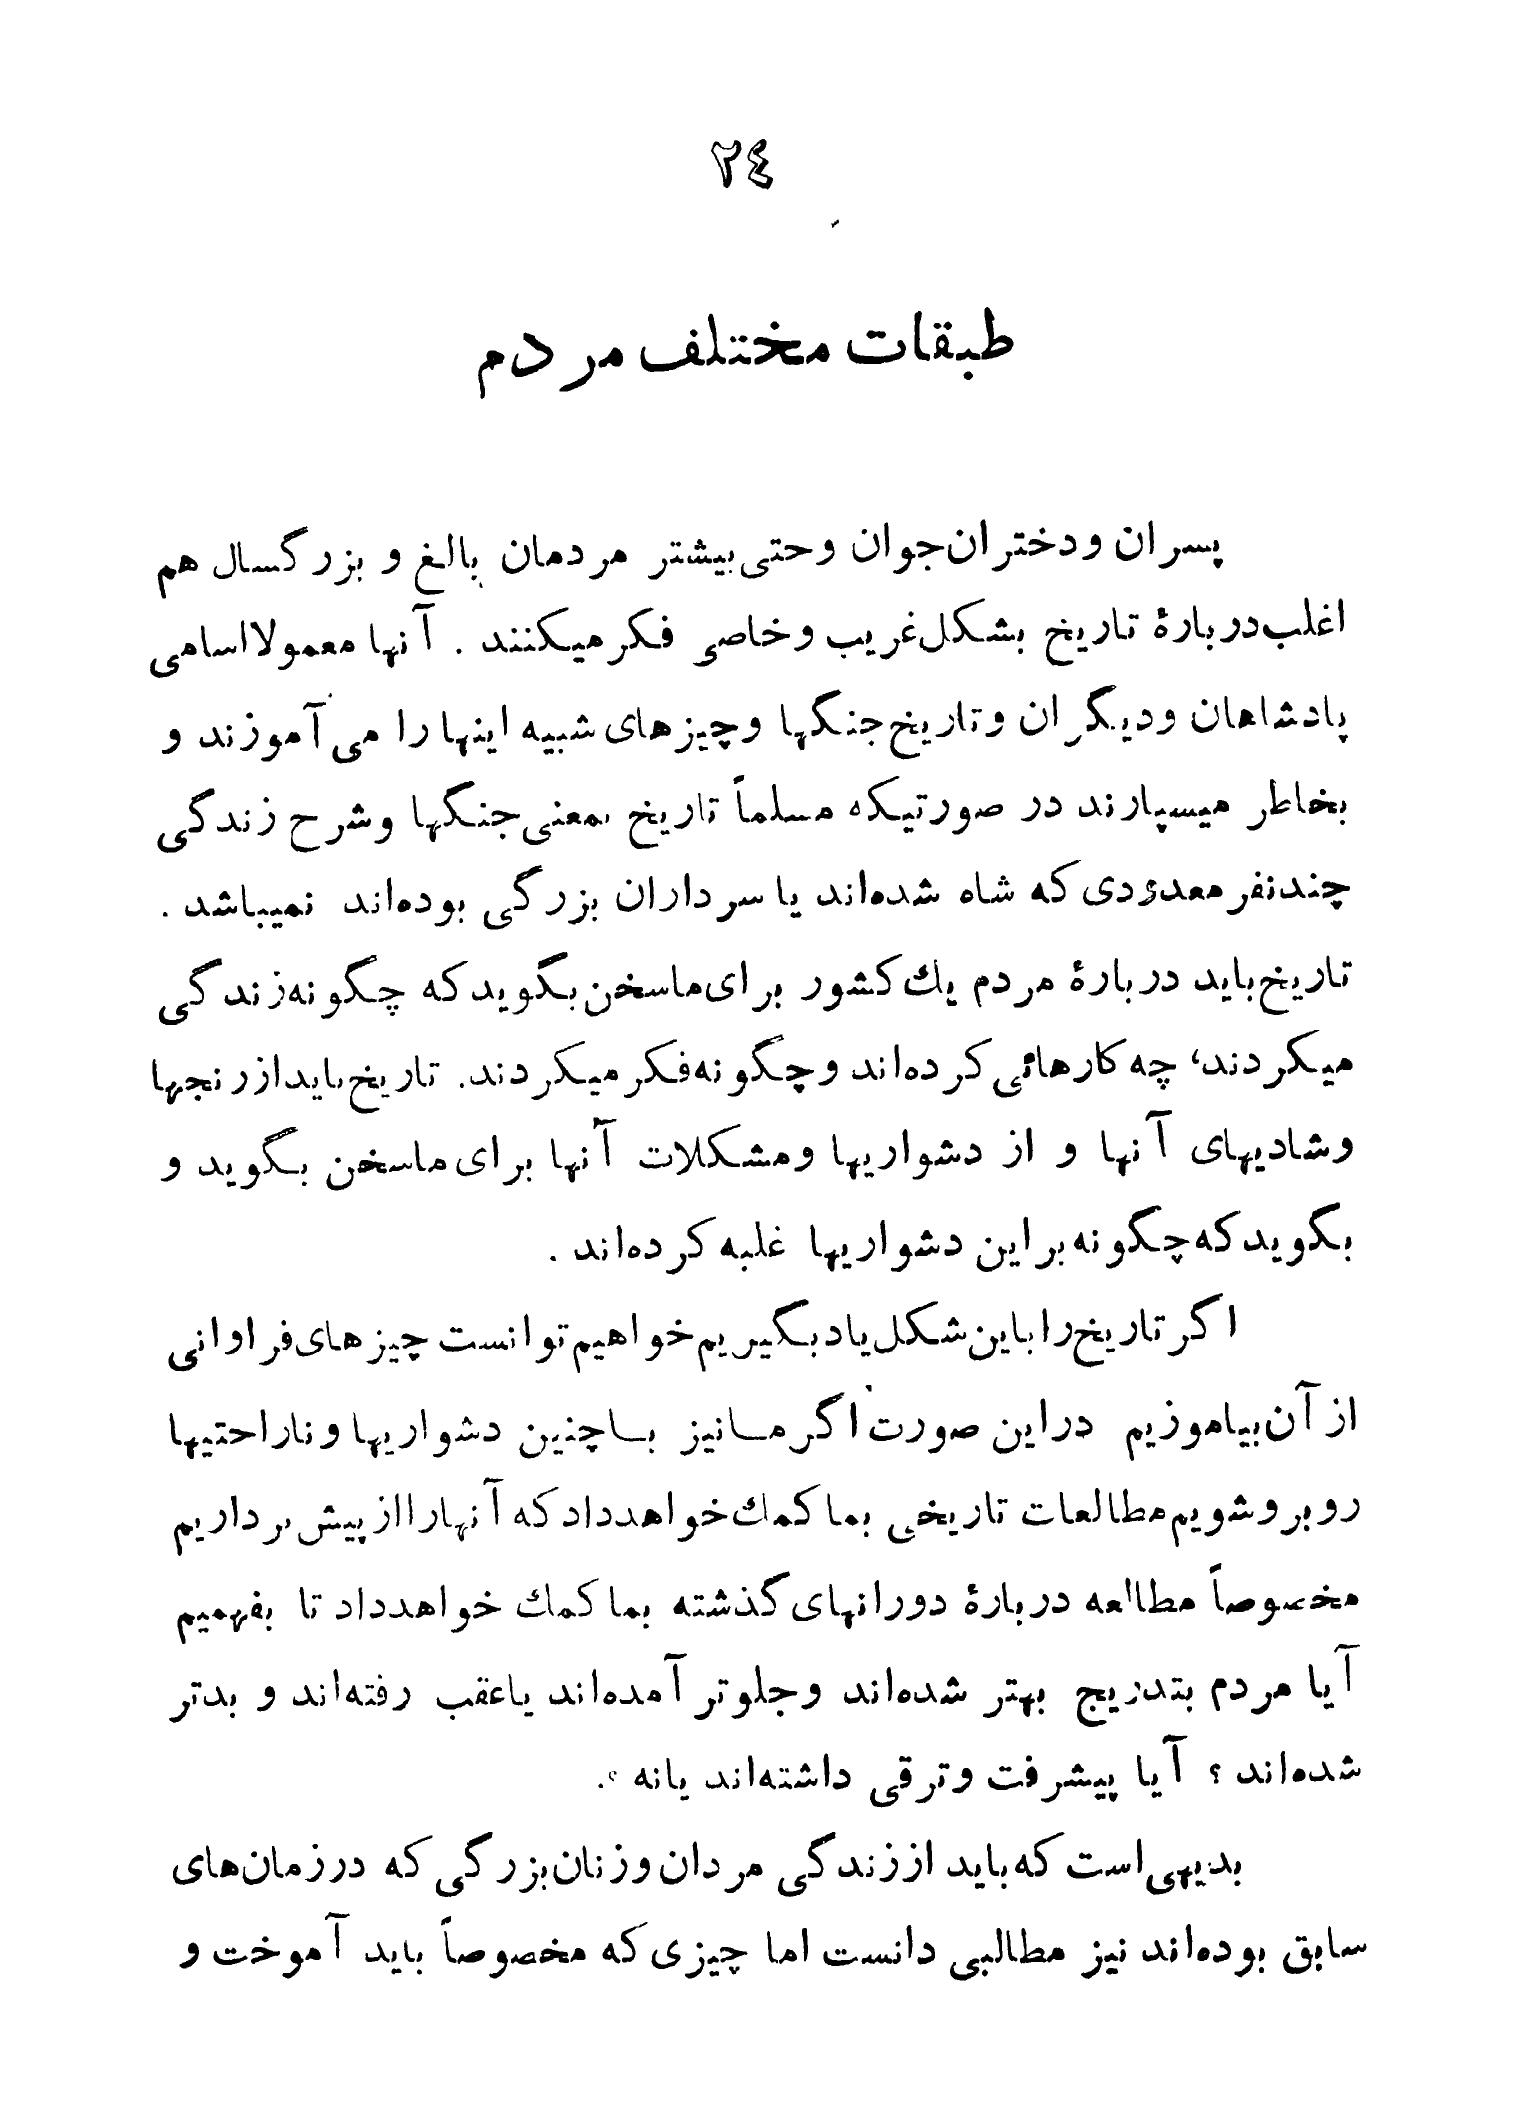 ٢٤
طبقات مختلف مردم
پسران و دختران جوان و حتی بیشتر مردمان بالغ و بزرگسال هم
اغلب دربارهٔ تاریخ بشکل غریب و خاصی فکر میکنند . آنها معمولا اسامی
پادشاهان و دیگران و تاریخ جنگها و چیزهای شبیه اینها را می آموزند و
بخاطر میسپارند در صورتیکه مسلماً تاریخ بمعنی جنگها و شرح زندگی
چند نفر معدودی که شاه شده‌اند یا سرداران بزرگی بوده‌اند نمیباشد .
تاریخ باید دربارهٔ مردم یك کشور برای ما سخن بگوید که چگونه زندگی
میکردند، چه کارهائی کرده‌اند و چگونه فکر میکردند. تاریخ باید از رنجها
و شادیهای آنها و از دشواریها و مشکلات آنها برای ما سخن بگوید و
بگوید که چگونه بر این دشواریها غلبه کرده‌اند .
اگر تاریخ را باین شکل یاد بگیریم خواهیم توانست چیزهای فراوانی
از آن بیاموزیم در این صورت اگر مــا نیز بــا چنین دشواریها و ناراحتیها
روبرو شویم مطالعات تاریخی بما کمك خواهد داد که آنها را از پیش برداریم
مخصوصاً مطالعه دربارهٔ دورانهای گذشته بما کمك خواهد داد تا بفهمیم
آیا مردم بتدریج بهتر شده‌اند و جلوتر آمده‌اند یا عقب رفته‌اند و بدتر
شده‌اند ؟ آیا پیشرفت و ترقی داشته‌اند یا نه ؟.
بدیهی است که باید از زندگی مردان و زنان بزرگی که در زمان‌های
سابق بوده‌اند نیز مطالبی دانست اما چیزی که مخصوصاً باید آموخت و